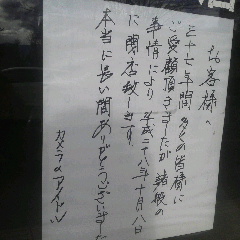 お客様へ
三十七年間多くの皆様に
ご愛顧頂きましたが諸般の
事情により平成二十八年十月八日
に閉店致します
本当に長い間ありがとうございました
カメラのアイドル